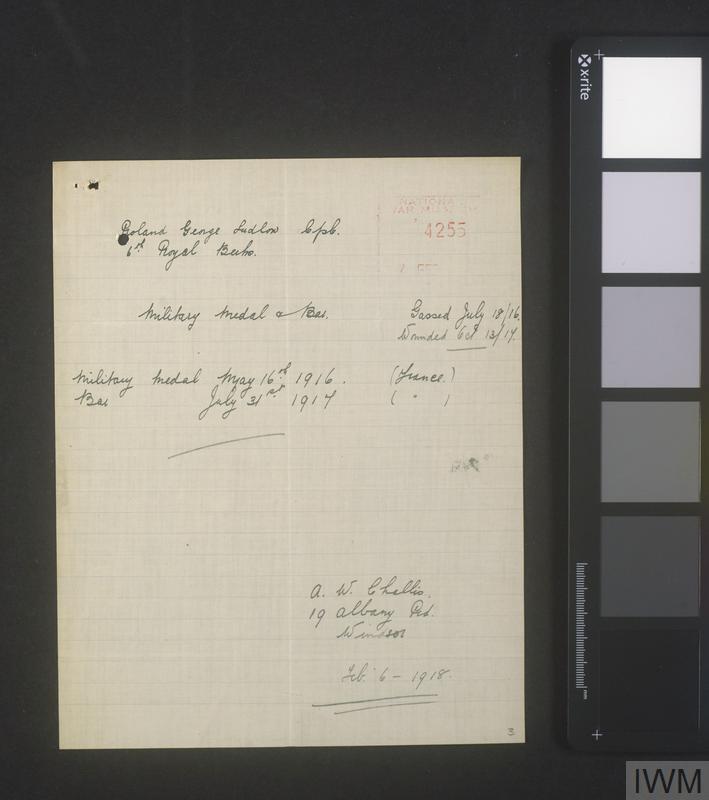 NATIONAL
WAR MUSEUM
4255
FEB
Roland George Ludlow Cpl.
6th Royal Berks.
Military Medal & Bar.
Gassed July 18/16.
Wounded Oct 13/17.
Military Medal May 16th 1916. (France.)
Bar July 31st 1917 ( " )
A. W. Challis.
19 Albany Rd.
Windsor
Feb. 6 - 1918.
x-rite
mm
IWM